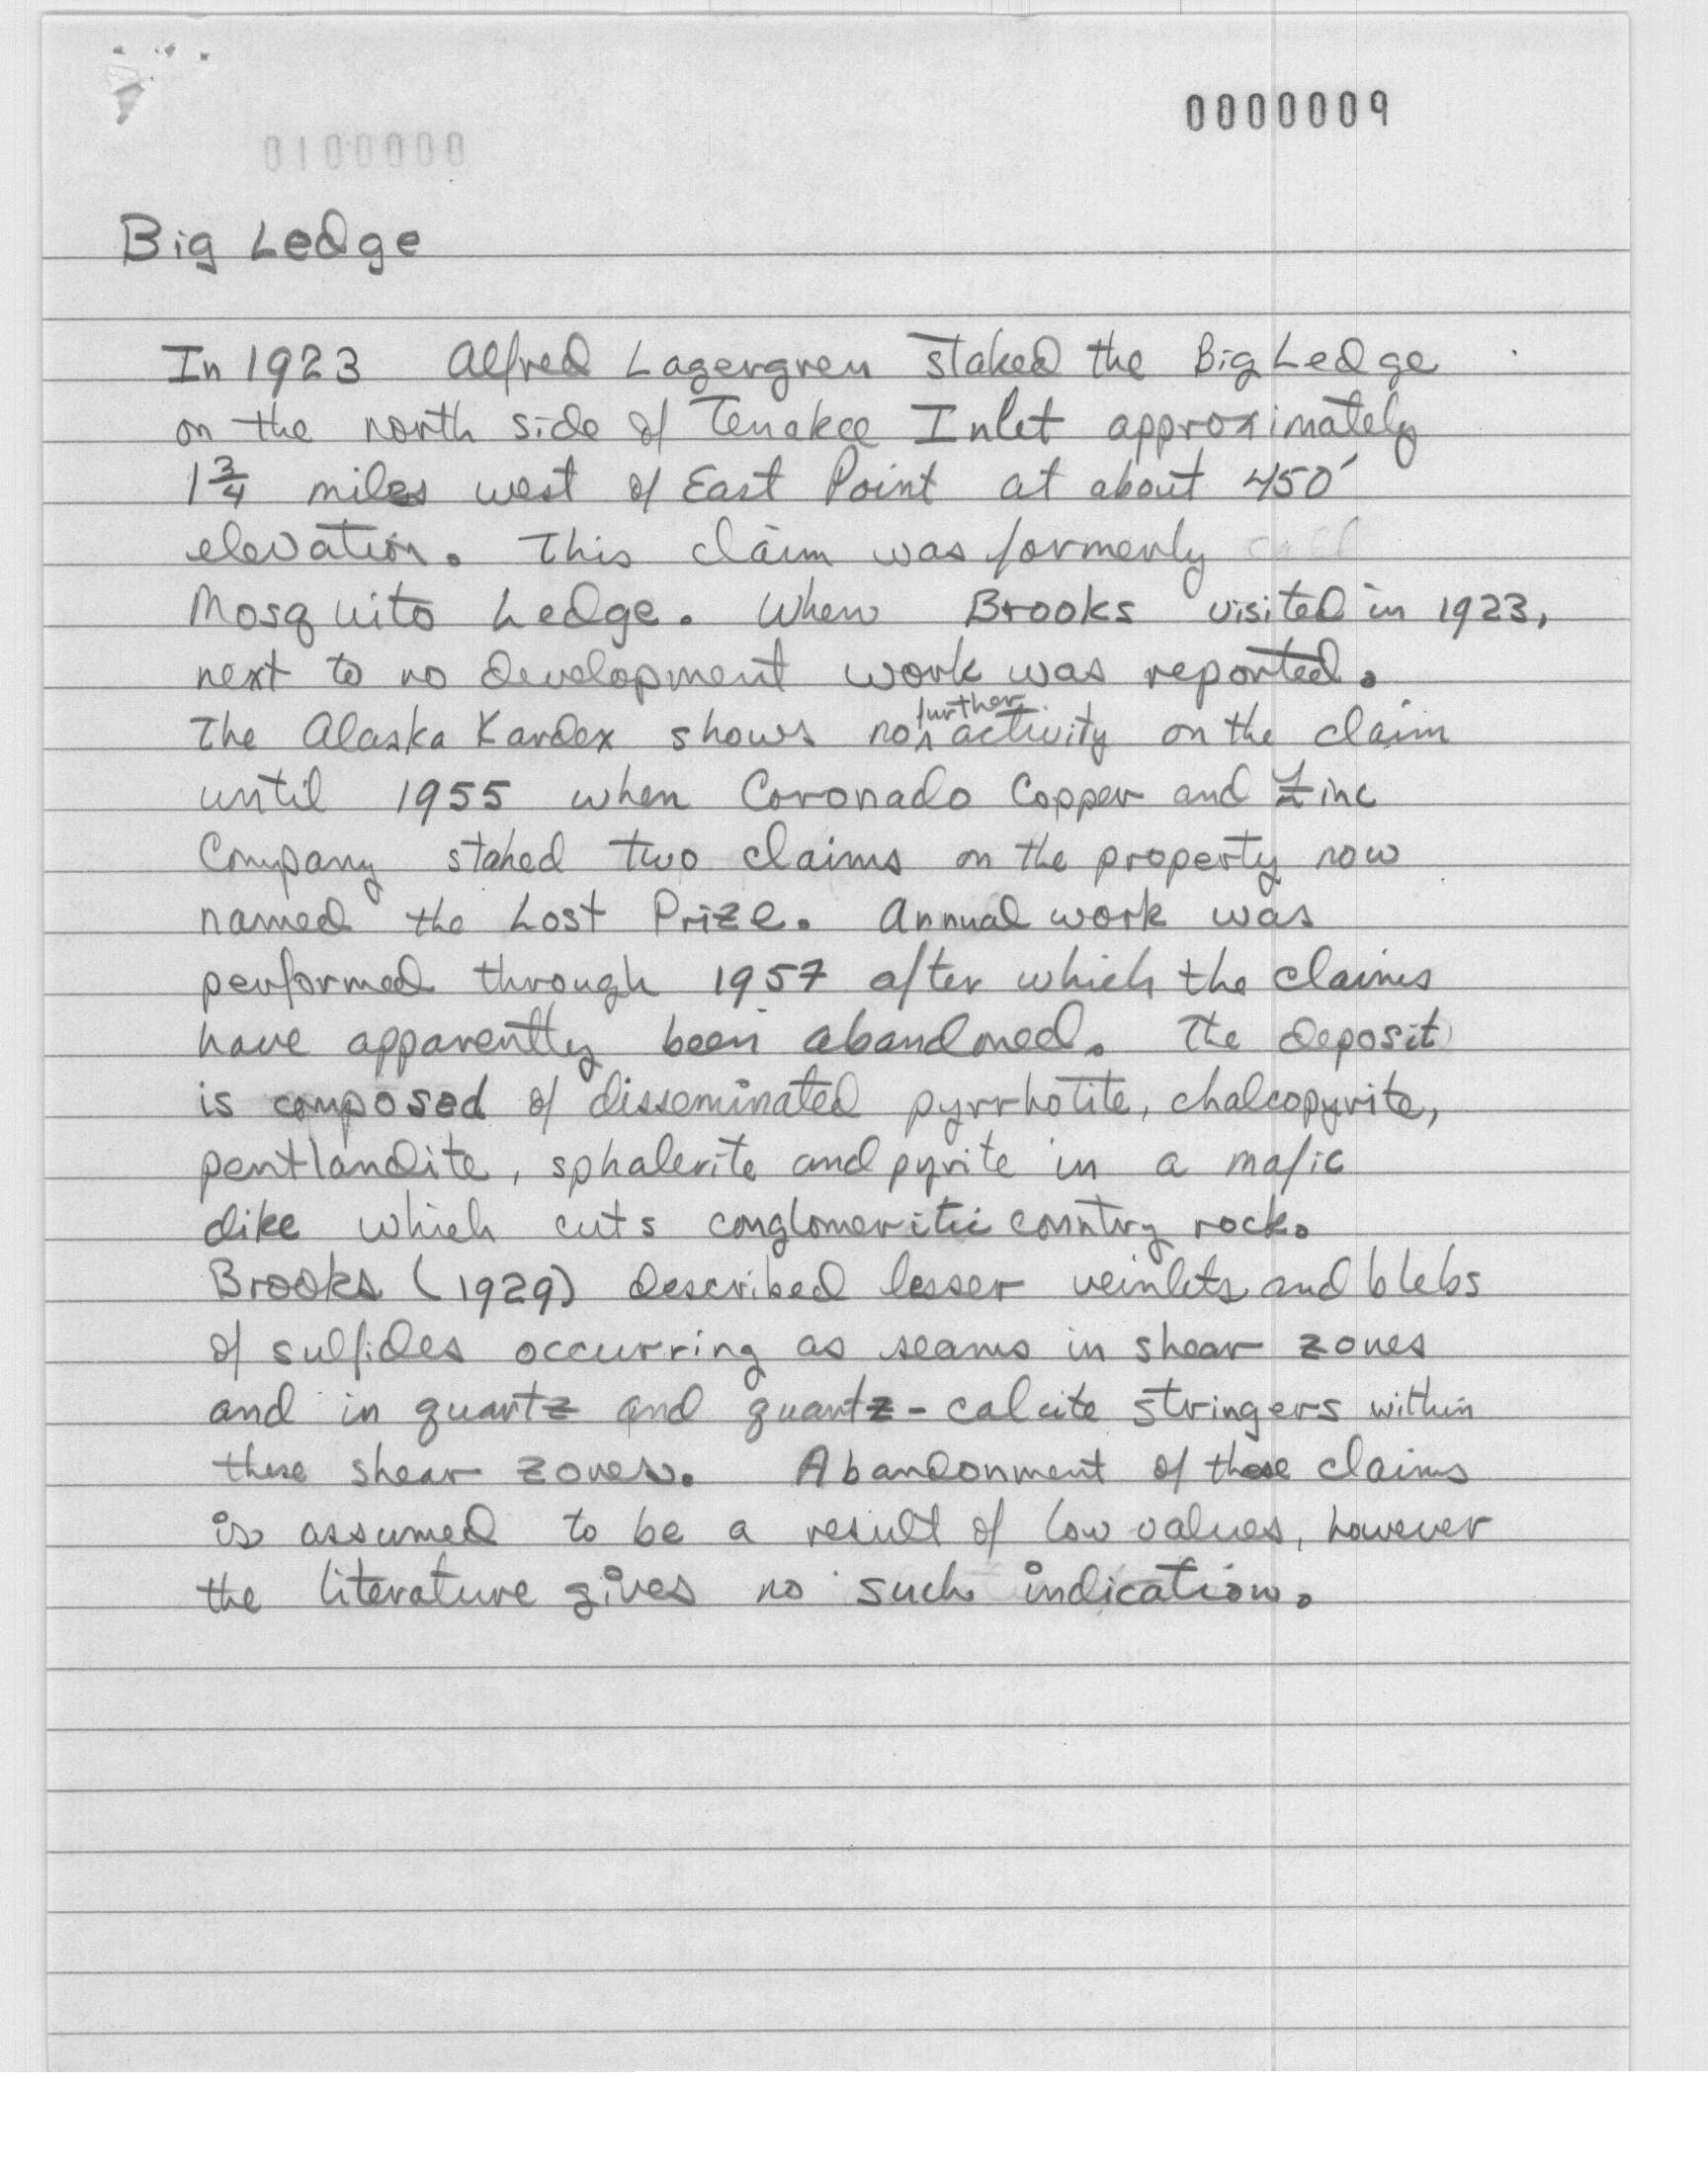 0000009
0100000
Big Ledge
In 1923 Alfred Lagergren staked the Big Ledge
on the north side of Tenakee Inlet approximately
1 3/4 miles west of East Point at about 450'
elevation. This claim was formerly
Mosquito Ledge. When Brooks visited in 1923,
next to no development work was reported.
The Alaska Kardex shows no further activity on the claim
until 1955 when Coronado Copper and Zinc
Company staked two claims on the property now
named the Lost Prize. Annual work was
performed through 1957 after which the claims
have apparently been abandoned. The deposit
is composed of disseminated pyrrhotite, chalcopyrite,
pentlandite, sphalerite and pyrite in a mafic
dike which cuts conglomeritic country rock.
Brooks (1929) described lesser veinlets and blebs
of sulfides occurring as seams in shear zones
and in quartz and quartz-calcite stringers within
these shear zones. Abandonment of these claims
is assumed to be a result of low values, however
the literature gives no such indication.